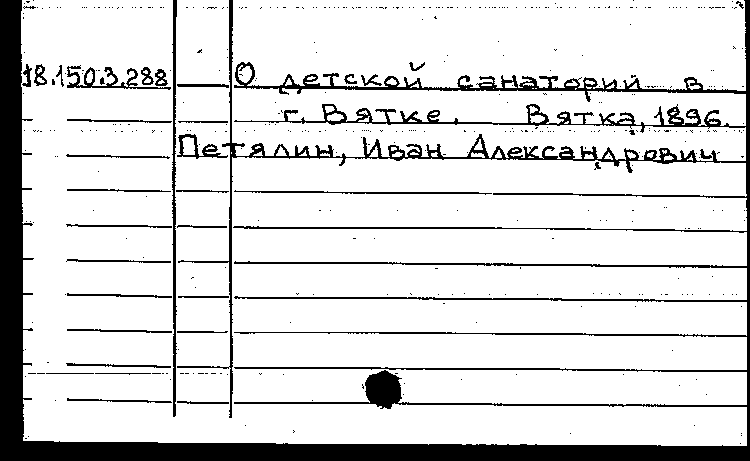 18.150.3.288 О детской санаторий в
г. Вятке. Вятка, 1896.
Петялин, Иван Александрович